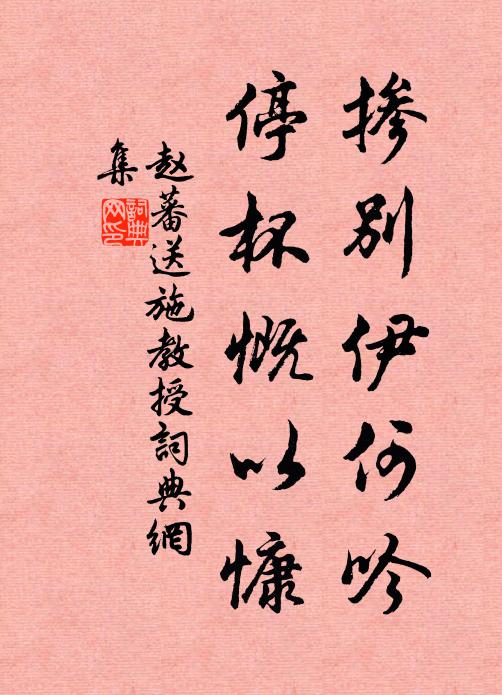 掺别伊何吟
停杯慨以慷
赵蕃送施教授詞典網
集
詞典网印